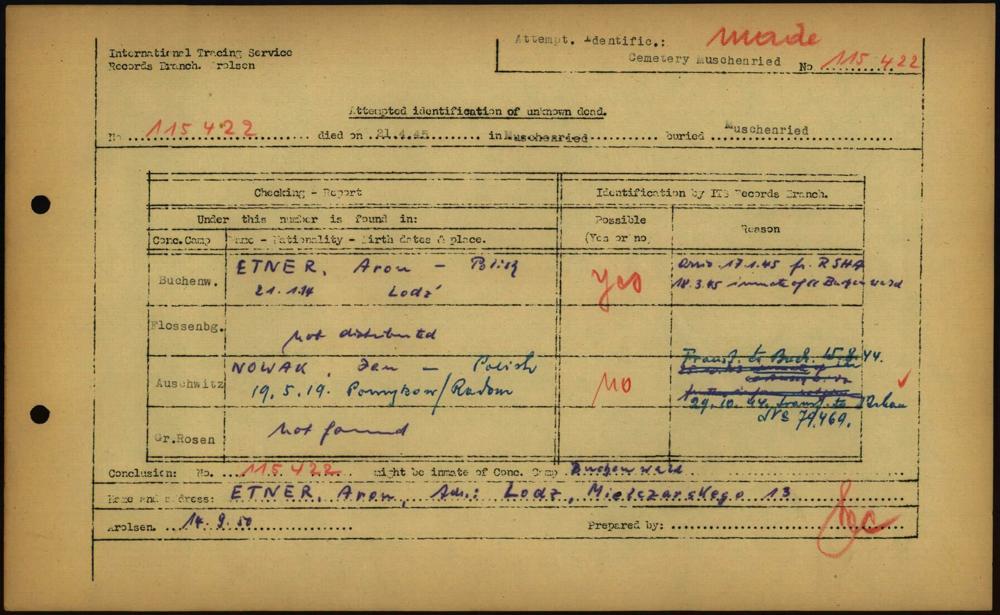 International Tracing Service
Records Branch. Arolsen
Attempt. Identific.: made
Cemetery Muschenried No 115 422
Attempted identification of unknown dead.
No 115 422 died on 21.4.45 in Muschenried buried Muschenried
Checking - Report
Identification by ITS Records Branch.
Under this number is found in:
Possible
(Yes or no)
Reason
Conc. Camp
Name - Nationality - Birth dates & place.
Buchenw.
ETNER, Aron - Polish
21.1.14 Lodz
yes
18.3.45 inmate of
Flossenbg.
not distributed
Auschwitz
NOWAK, Jan - Polish
19.5.19. /Radom
no
Transf. to Buch.
29.10.44. transf. to
No 79469.
Gr.Rosen
not found
Conclusion: No. 115 422 might be inmate of Conc. Camp Buchenwald
Name and address: ETNER, Aron, Adr.: Lodz, Mielczarskego 13
Arolsen. 14.9.50 Prepared by: